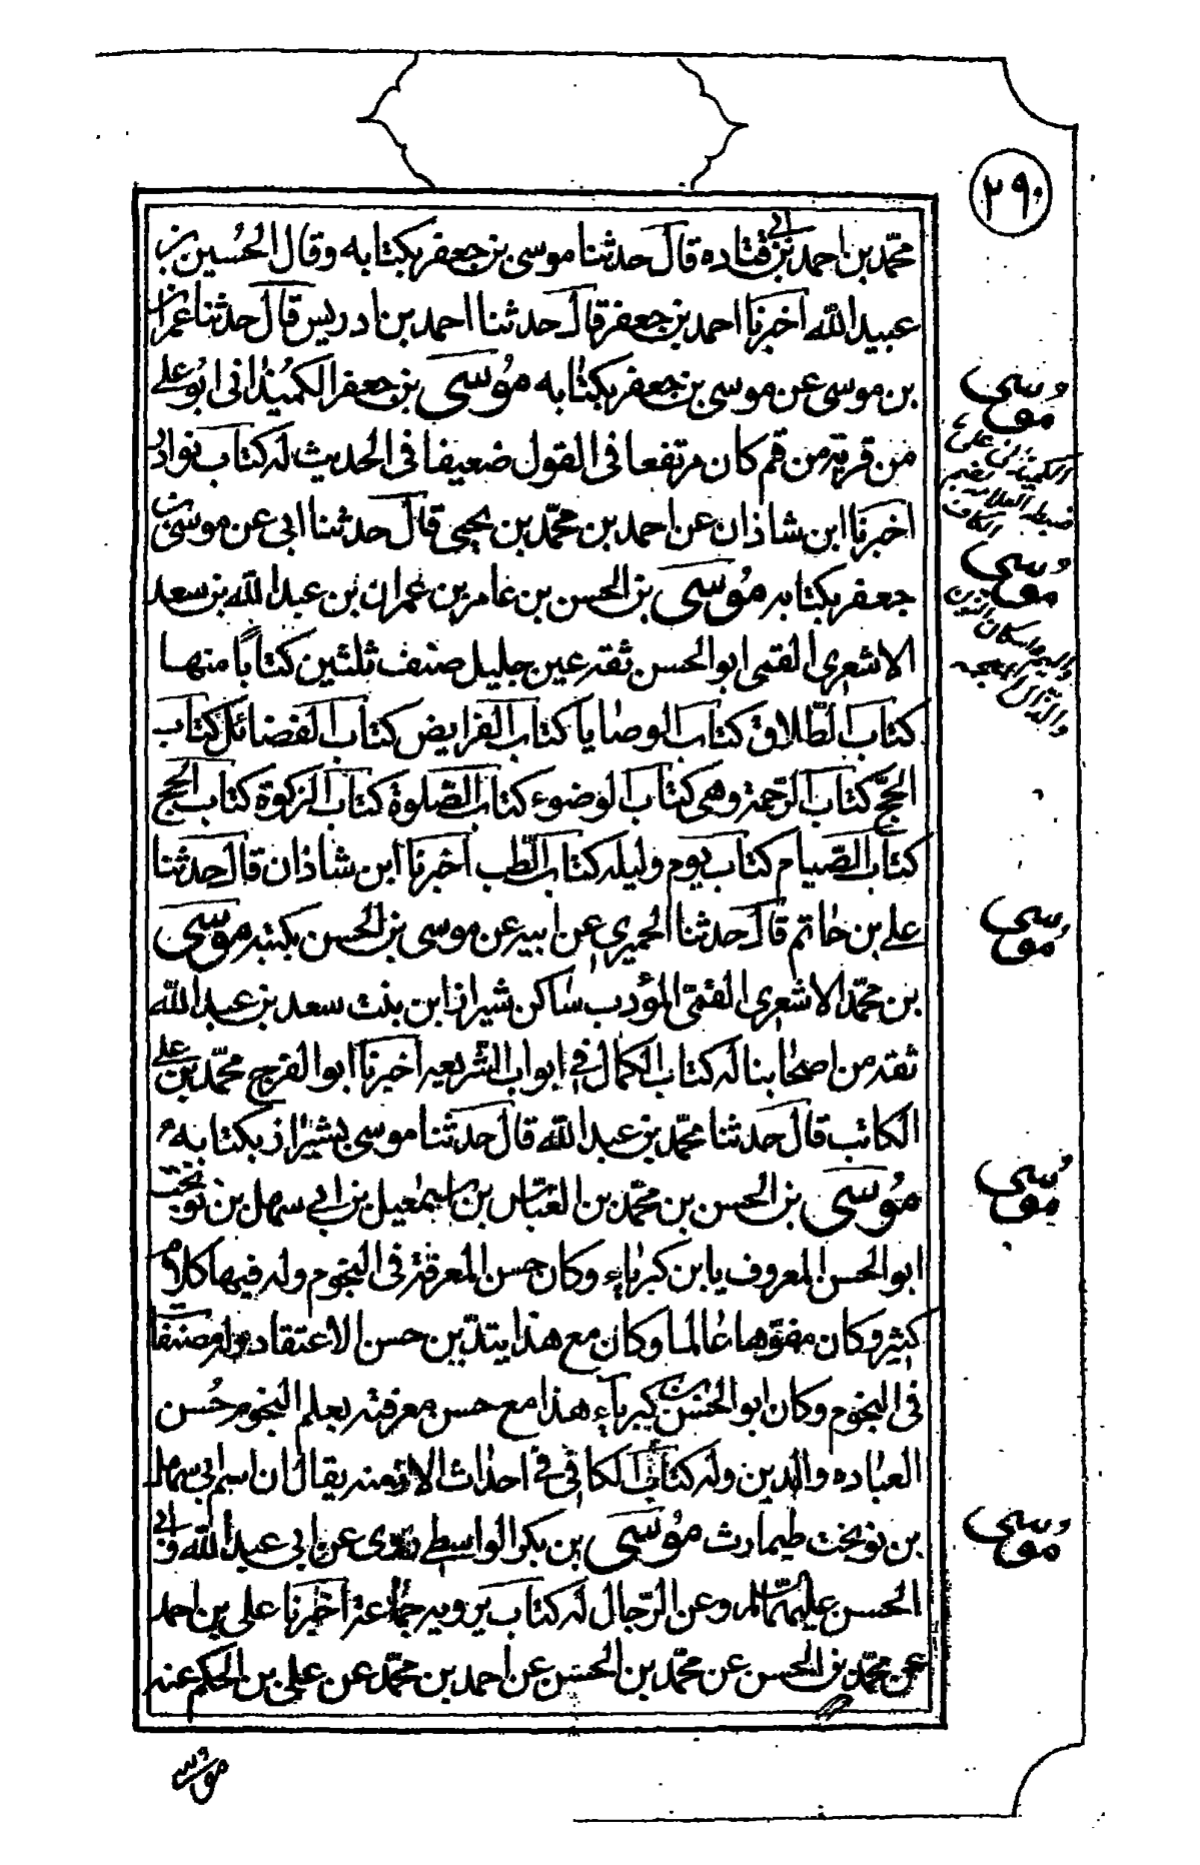 ٢٩٠
محمّد بن احمد بن ابي قتاده قال حدثنا موسى بن جعفر بكتابه وقال الحُسين بن
عبيد الله اخبرنا احمد بن جعفر قال حدثنا احمد بن ادريس قال حدثنا عمران
بن موسى عن موسى بن جعفر بكتابه مُوسى بن جعفر الكميُذانى ابو على
من قرية من قم كان مرتفعا فى القول ضعيفا فى الحديث له كتاب نوادر
اخبرنا ابن شاذان عن احمد بن محمّد بن يحيى قال حدثنا ابى عن موسى بن
جعفر بكتابه مُوسى بن الحسن بن عامر بن عمران بن عبد الله بن سعد
الاشعرى القمى ابو الحسن ثقة عين جليل صنف ثلثين كتابًا منها
كتاب الطّلاق كتاب الوصايا كتاب الفرايض كتاب الفضائل كتاب
الحجّ كتاب الرّحمة وهى كتاب الوضوء كتاب الصّلوة كتاب الزكوة كتاب الحج
كتاب الصّيام كتاب يوم وليله كتاب الطّب اخبرنا ابن شاذان قال حدثنا
على بن حاتم قال حدثنا الحميرى عن ابيه عن موسى بن الحسن بكتبه موُسى
بن محمّد الاشعرى القمّى المؤدب ساكن شيراز ابن بنت سعد بن عبد الله
ثقه من اصحابنا له كتاب الكمال فى ابواب الشريعه اخبرنا ابو الفرج محمّد بن على
الكاتب قال حدثنا محمّد بن عبد الله قال حدثنا موسى بشيراز بكتابه
مُوسى بن الحسن بن محمّد بن العبّاس بن اسمعيل بن ابى سهل بن نوبخت
ابو الحسن المعروف يابن كبرياء وكان حسن المعرفة فى النجوم وله فيها كلام
كثير وكان مفوّها عالما وكان مع هذا يتديّن حسن الاعتقاد وله مصنفات
فى النجوم وكان ابو الحسن بن كبرياء هذا مع حسن معرفته بعلم النجوم حُسن
العباده والدين وله كتاب الكافى فى احداث الازمنه يقال ان اسم ابى سهل
بن نوبخت طيمارث موُسى بن بكر الواسطى روى عن ابى عبد الله وابى
الحسن عليهما السّلام وعن الرّجال له كتاب يرويه جماعة اخبرنا على بن احمد
عن محمّد بن الحسن عن محمّد بن الحسن عن احمد بن محمّد عن على بن الحكم عنه
موُسى
الكميذانى على
ضبطه العلامه بضم
الكاف
موُسى
والميم واسكان الياء
والذال المعجمه
موُسى
موُسى
موُسى
موسى